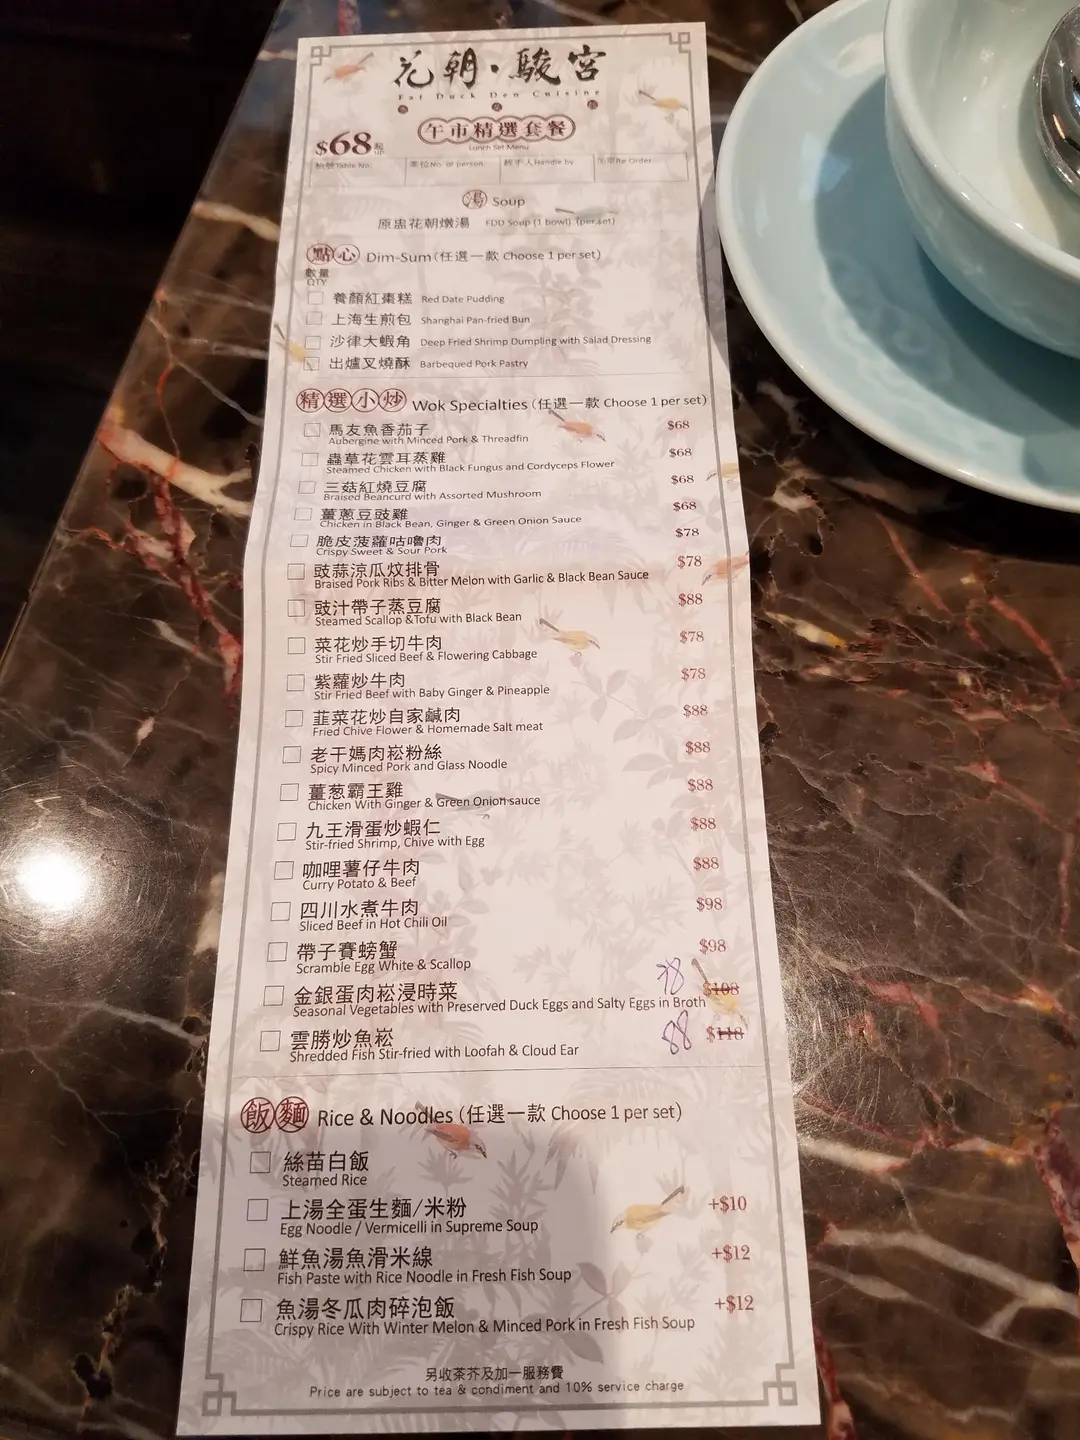 花朝·駿宮
Fat Duck Den Cuisine
午市精選套餐
Lunch Set Menu
$68起 up
枱號Table No. 茶位No. of person 經手人Handle by 加單Re Order
湯 Soup
原盅花朝燉湯 FDD Soup (1 bowl) (per set)
點心 Dim-Sum (任選一款 Choose 1 per set)
數量
QTY
養顏紅棗糕 Red Date Pudding
上海生煎包 Shanghai Pan-fried Bun
沙律大蝦角 Deep Fried Shrimp Dumpling with Salad Dressing
出爐叉燒酥 Barbequed Pork Pastry
精選小炒 Wok Specialties (任選一款 Choose 1 per set)
馬友魚香茄子 $68
Aubergine with Minced Pork & Threadfin
蟲草花雲耳蒸雞 $68
Steamed Chicken with Black Fungus and Cordyceps Flower
三菇紅燒豆腐 $68
Braised Beancurd with Assorted Mushroom
薑蔥豆豉雞 $68
Chicken in Black Bean, Ginger & Green Onion Sauce
脆皮菠蘿咕嚕肉 $78
Crispy Sweet & Sour Pork
豉蒜涼瓜炆排骨 $78
Braised Pork Ribs & Bitter Melon with Garlic & Black Bean Sauce
豉汁帶子蒸豆腐 $88
Steamed Scallop &Tofu with Black Bean
菜花炒手切牛肉 $78
Stir Fried Sliced Beef & Flowering Cabbage
紫蘿炒牛肉 $78
Stir Fried Beef with Baby Ginger & Pineapple
韮菜花炒自家鹹肉 $88
Fried Chive Flower & Homemade Salt meat
老干媽肉崧粉絲 $88
Spicy Minced Pork and Glass Noodle
薑葱霸王雞 $88
Chicken With Ginger & Green Onion sauce
九王滑蛋炒蝦仁 $88
Stir-fried Shrimp, Chive with Egg
咖哩薯仔牛肉 $88
Curry Potato & Beef
四川水煮牛肉 $98
Sliced Beef in Hot Chili Oil
帶子賽螃蟹 $98
Scramble Egg White & Scallop
金銀蛋肉崧浸時菜 78 $108
Seasonal Vegetables with Preserved Duck Eggs and Salty Eggs in Broth
雲勝炒魚崧 88 $118
Shredded Fish Stir-fried with Loofah & Cloud Ear
飯麵 Rice & Noodles (任選一款 Choose 1 per set)
絲苗白飯
Steamed Rice
上湯全蛋生麵/米粉 +$10
Egg Noodle / Vermicelli in Supreme Soup
鮮魚湯魚滑米線 +$12
Fish Paste with Rice Noodle in Fresh Fish Soup
魚湯冬瓜肉碎泡飯 +$12
Crispy Rice With Winter Melon & Minced Pork in Fresh Fish Soup
另收茶芥及加一服務費
Price are subject to tea & condiment and 10% service charge